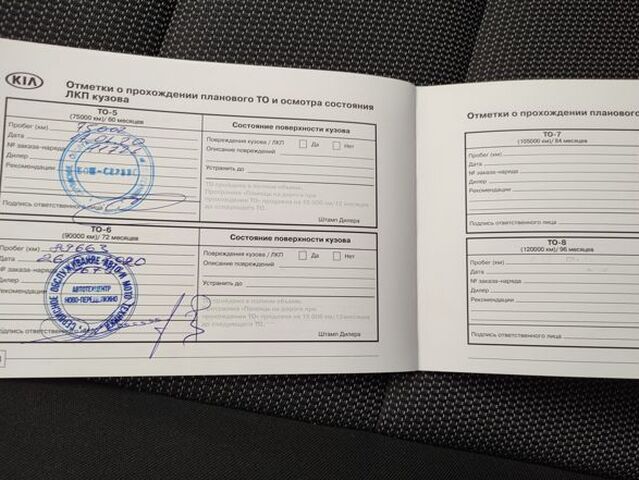 KIA
Отметки о прохождении планового ТО и осмотра состояния
ЛКП кузова
ТО-5
(75000 км)/ 60 месяцев
Пробег (км)
Дата
№ заказа-наряда
Дилер
Рекомендации
Подпись ответственного лица
Состояние поверхности кузова
Повреждения кузова / ЛКП Да Нет
Описание повреждений
Устранить до
ТО пройдено в полном объеме.
Программа «Помощь на дороге при
прохождении ТО» продлена на 15 000 км/ 12 месяцев
до следующего ТО.
Штамп Дилера
ТО-6
(90000 км)/ 72 месяцев
Пробег (км) 89663
Дата
№ заказа-наряда
Дилер
Рекомендации
Подпись ответственного лица
СЕРВИСНОЕ ОБСЛУЖИВАНИЕ АВТО И МОТО ТЕХНИКИ
АВТОТЕХЦЕНТР
НОВО-ПЕРЕДЕЛКИНО
Состояние поверхности кузова
Повреждения кузова / ЛКП Да Нет
Описание повреждений
Устранить до
ТО пройдено в полном объеме.
Программа «Помощь на дороге при
прохождении ТО» продлена на 15 000 км/ 12 месяцев
до следующего ТО.
Штамп Дилера
Отметки о прохождении планового
ТО-7
(105000 км)/ 84 месяцев
Пробег (км)
Дата
№ заказа-наряда
Дилер
Рекомендации
Подпись ответственного лица
ТО-8
(120000 км)/ 96 месяцев
Пробег (км)
Дата
№ заказа-наряда
Дилер
Рекомендации
Подпись ответственного лица